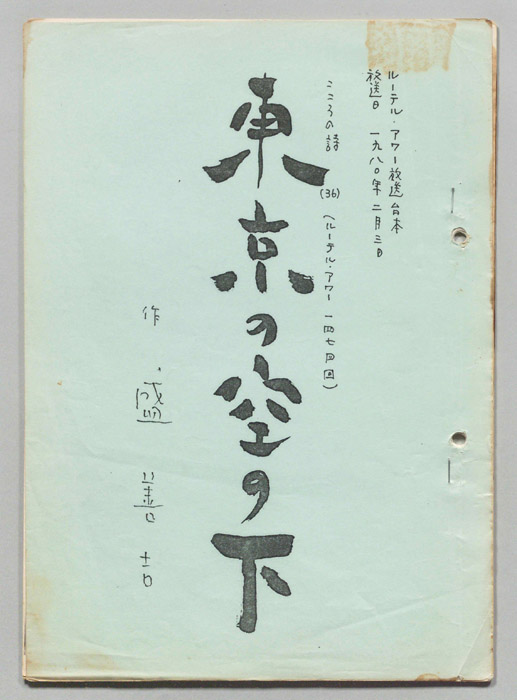 ルーテル・アワー放送台本
放送日 一九八〇年 二月三日
こころの詩 (36) (ルーテル・アワー 一四七四回)
東京の空の下
作 盛 善吉